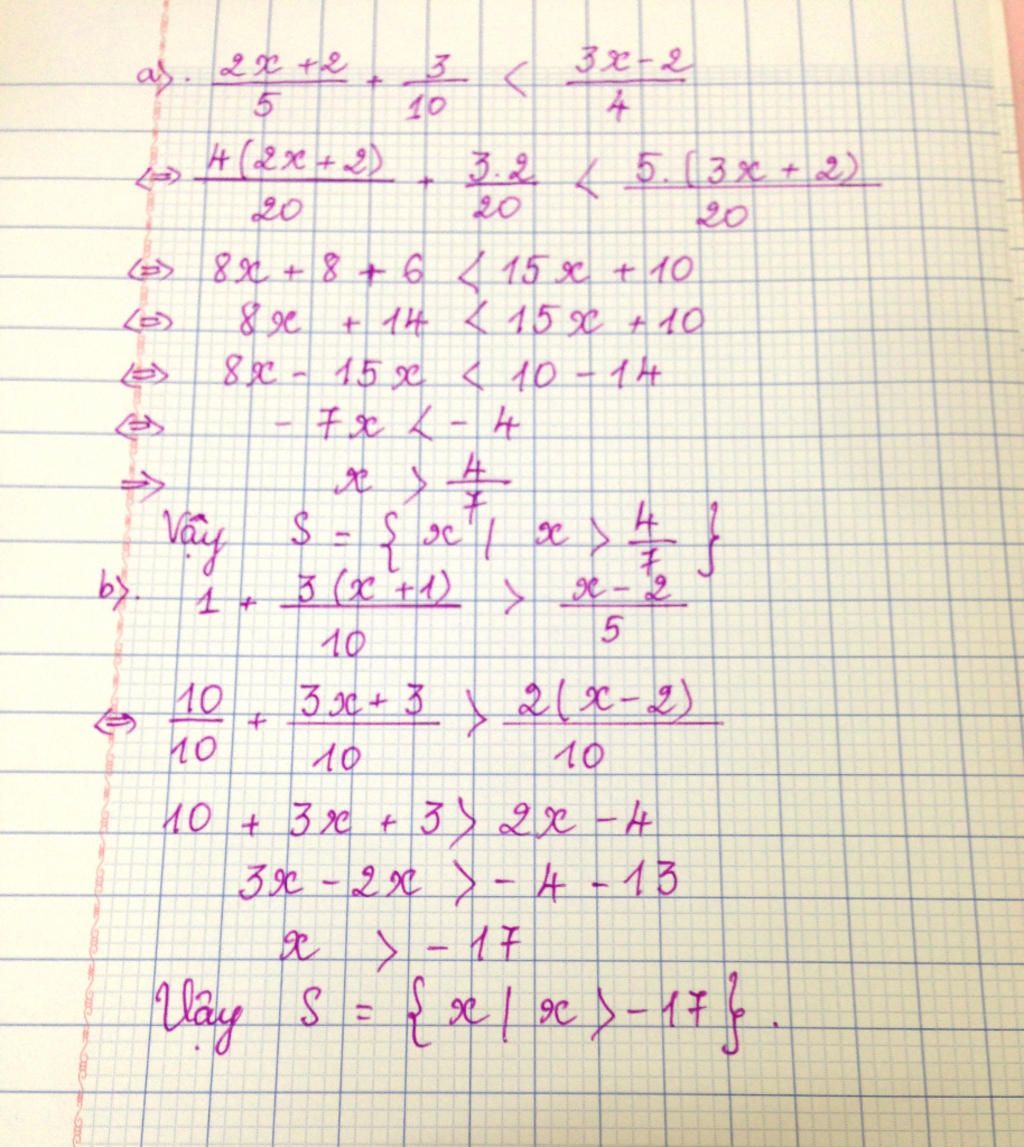 a). (2x + 2)/5 + 3/10 < (3x - 2)/4
⇔ 4(2x + 2)/20 + 3.2/20 < 5.(3x + 2)/20
⇔ 8x + 8 + 6 < 15x + 10
⇔ 8x + 14 < 15x + 10
⇔ 8x - 15x < 10 - 14
⇔ - 7x < - 4
⇒ x > 4/7
Vậy S = { x | x > 4/7 }
b). 1 + 3(x + 1)/10 > (x - 2)/5
⇔ 10/10 + (3x + 3)/10 > 2(x - 2)/10
10 + 3x + 3 > 2x - 4
3x - 2x > - 4 - 13
x > - 17
Vậy S = { x | x > - 17 }.